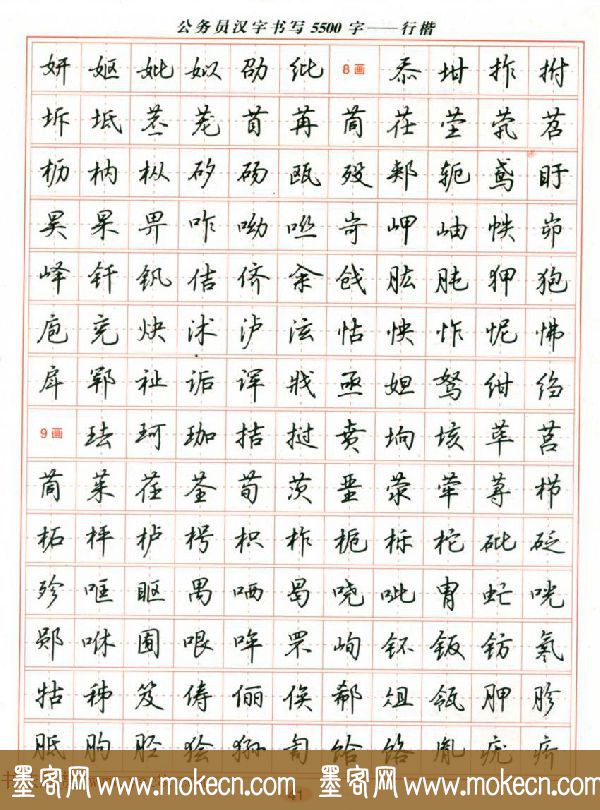 公务员汉字书写5500字——行楷
妍妪妣姒劭纰8画忝坩拃拊
坼坻茎茏苜苒茼茌茔茕茗
枥枘枞矽砀瓯殁郏轭鸢盱
昊杲畀咋呦咝岢岬岫帙峁
峄钎钒佶侪籴饯肱肫狎狍
庖兖炔沭泸泫怙怏怍怩怫
戽郓祉诟诨戕亟妲驽绀绉
9画珐珂珈拮挝贲垧垓荜莒
茼茱荏荃荀茨垩荥荦荨栉
柘枰栌枵枳柞栀柝柁砒砭
殄哐眍禺哂曷哓呲胄虻咣
郧咻囿哏哞罘峋钚钣钫氡
牯秭笈俦俪俟郗俎瓴胛胗
胝朐胫狯狲匍饴饹胤疣疥
墨客网 www.mokecn.com 墨客网 www.mokecn.com